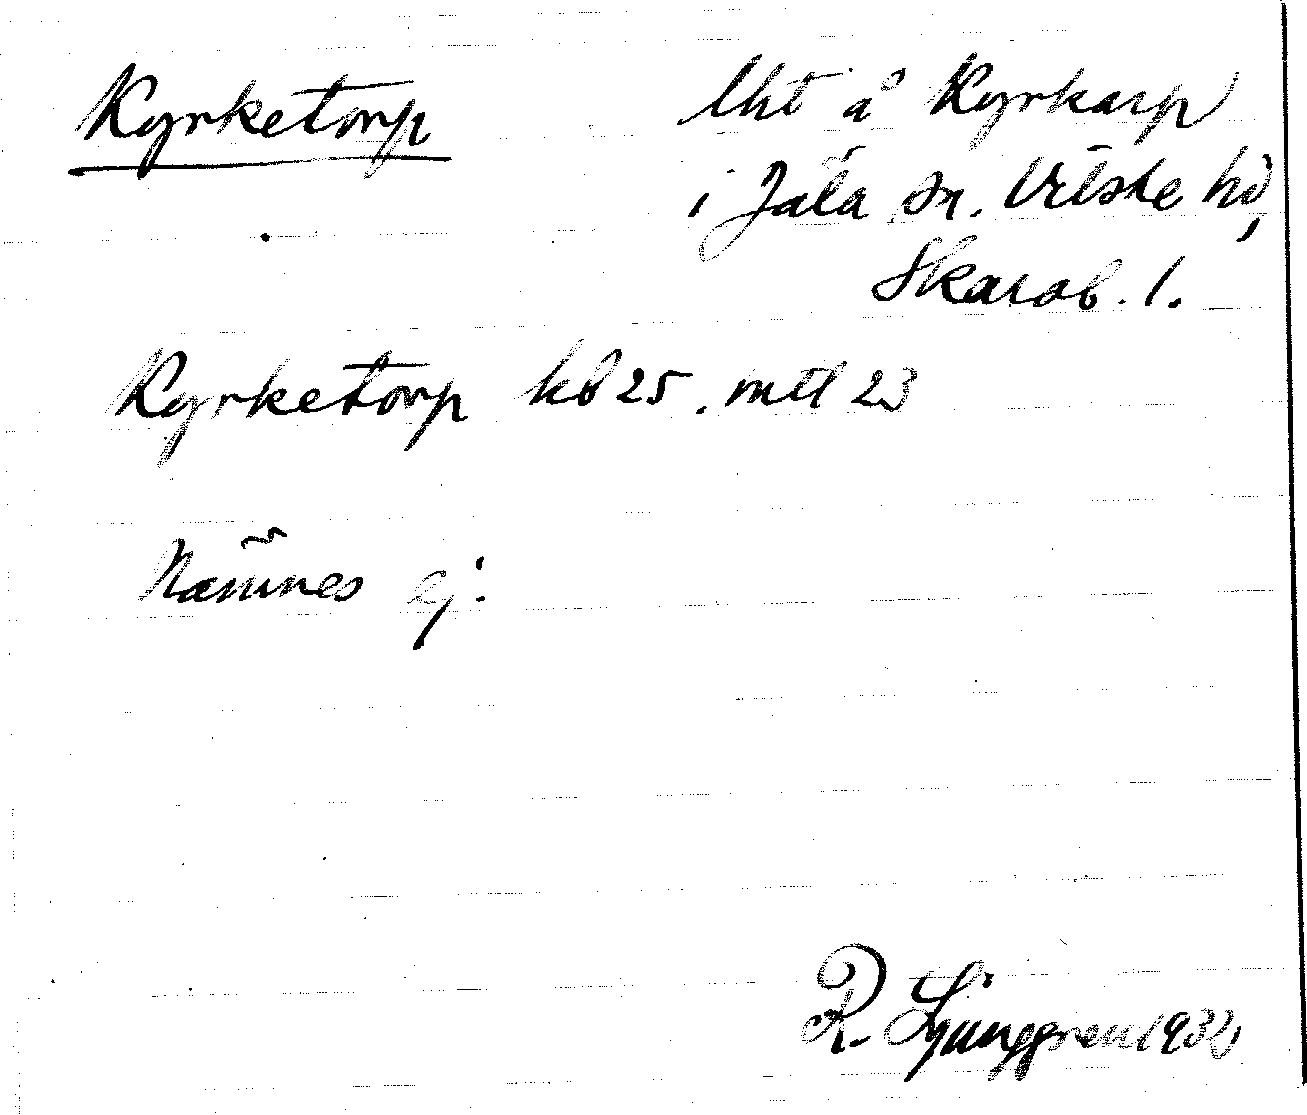 Kyrketorp
Uht å Kyrkarp
i Jäla sn. Vilske hd,
Skarab. l.
Kyrketorp kb 25. mtl 23
Nämnes ej.
R. Ljunggren 1932